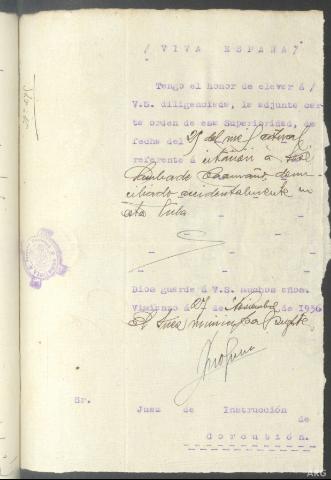 ¡ VIVA ESPAÑA !
Tengo el honor de elevar á
V.S. diligenciada, la adjunta car-
ta orden de esa Superioridad, de
fecha del 25 del mes actual
referente á citación a José
domi-
ciliado accidentalmente en
esta Villa
Dios guarde á V.S. muchos años.
Vimianzo á 27 de de 1936
El Juez municipal
Sr.
Juez de Instrucción
de
Corcubión.
ARG